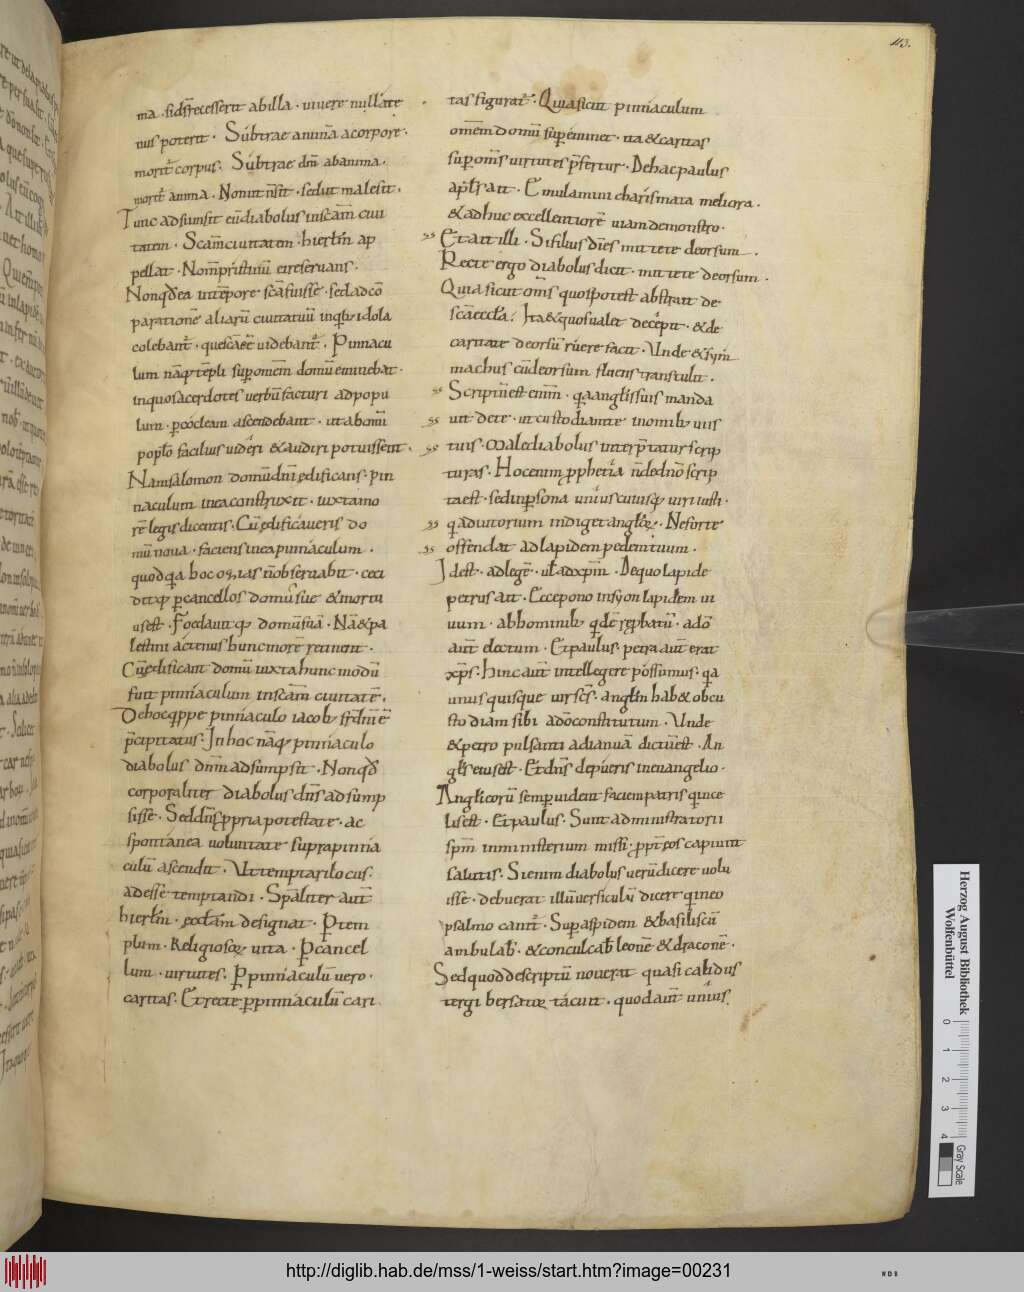 113.
ma · si dr̄ recesserit ab illa · vivere nullate
nus poterit · Subtrae animā a corpore ·
morit̄ corpus · Subtrae dm̄ ab anima ·
morit̄ anima · Non ut n̄ sit · sed ut male sit ·
Tunc adsumsit eū diabolus in scām civi
tatem · Scam̄ civitatem · hierlm̄ ap
pellat · Nom̄ pristinū ei reservans ·
Non qđ ea in tēpore scā fuisse · sed ad cō
parationē aliarū civitatiū in qb; idola
colebant̄ · que scāe eē videbant̄ · Pinnacu
lum nāq; tēpli sup omēm domū eminebat ·
in quo sacerdotes verbū facturi ad popu
lum · p cocleam ascendebant · ut ab omi
poplo facilius videri & audiri potuissent ·
Nam salomon domū dnī ędificans · pin
naculum in ea construxit · iuxta mo
rē legis dicentis · Cū ędificaveris do
mū nova · faciens in ea pinnaculum ·
quod qa hoc ozias n̄ observabit · ceci
ditq; p cancellos domus sue & mortu
us est · Foedavitq; domū suā · Nā & pa
lestini actenus hunc morē retinent ·
Cū ędificant domū iuxta hunc modū
fuit pinnaculum in scām civitatē ·
De hoc q̄ppe pinniaculo iacob; fr̄ dnī ē
p̄cipitatus · In hoc nāq; pinniaculo
diabolus dnm̄ adsumpsit · Non qđ
corporaliter diabolus dn̄s adsump
sisse · Sed dn̄s ppria potestate · ac
spontanea voluntate supra pinnia
culū ascendit · Ut temptari locus ·
adesset temptandi · Spāliter aut̄
hierlm̄ · ęcclām designat · P tem
plum · Religiosoƶ vita · P cancel
lum · virtutes · P pinniaculū vero ·
caritas · Et recte p pinniaculū cari
tas figurat̄ · Quia sicut pinniaculum
omēm domū supeminet · ita & caritas
sup om̄s virtutes p̄fertur · De hac paulus
apl̄s ait · Emulamini charismata meliora ·
& adhuc excellentiorē viam demonstro ·
Et ait illi · Si filius dī es mitte te deorsum ·
Recte ergo diabolus dicit · mitte te deorsum ·
Quia sicut om̄s quos potest abstrait de
scā ecclā · Ita & quos valet decepit · & de
caritate deorsū ruere facit · Unde & sym̄
machus cū deorsum fluens transtulit ·
Scriptū est enim̄ · qa anglis suis manda
vit de te · ut custodiant te in omib; viis
tuis · Male diabolus interp̄tatur scrip
turas · Hoc enim pphetia n̄ de dnō scrip
ta est · sed in psona unius cuiusq; viri iusti ·
q̄ adiutorium indiget angloƶ · Ne forte
offendat ad lapidem pedem tuum ·
Id est · ad legē · ut ad xpm̄ · De quo lapide
petrus ait · Ecce pono in syon lapidem vi
vum · ab hominib; qdē reprobatū · a dō
aut̄ electum · Et paulus · petra aut̄ erat
xp̄s · Hinc aut̄ intellegere possumus · qa
unusquisque vir scs̄ · anglm̄ hab& ob cu
stodiam sibi a dō constitutum · Unde
& petro pulsanti ad ianuā dictū est · An
gls̄ eius est · Et dn̄s de pueris in evangelio ·
Angli eorū semp vident faciem patris q̄ in ce
lis est · Et paulus · Sunt administratorii
spm̄ in ministerium missi · ppt̄ eos capiunt
salutis · Si enim diabolus verū dicere volu
isse · debuerat illū versiculū dicere q̄ in eo
psalmo cant̄ · Sup aspidem & basiliscū
ambulab̄ · & conculcab̄ leonē & draconē ·
Sed quod descriptū noverat quasi calidus
tergiversatur tacuit · quod aut̄ unius
Herzog August Bibliothek
Wolfenbüttel
0 1 2 3 4
Gray Scale
http://diglib.hab.de/mss/1-weiss/start.htm?image=00231